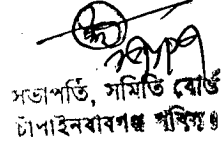 সভাপতি, সমিতি বোর্ড
চাঁপাইনবাবগঞ্জ